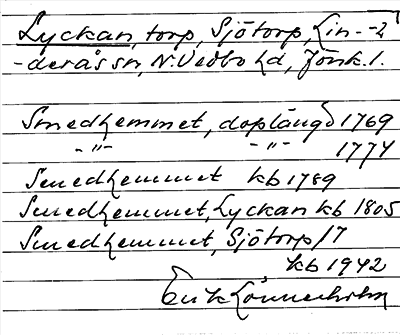 Lyckan, torp, Sjötorp, Lin-
-deråssn, N. Vedbo hd, Jönk. l.
Smedhemmet, doplängd 1769
-"- -"- 1774
Smedhemmet kb 1789
Smedhemmet, Lyckan kb 1805
Smedhemmet, Sjötorp/7
kb 1942
Erik Lönnerholm